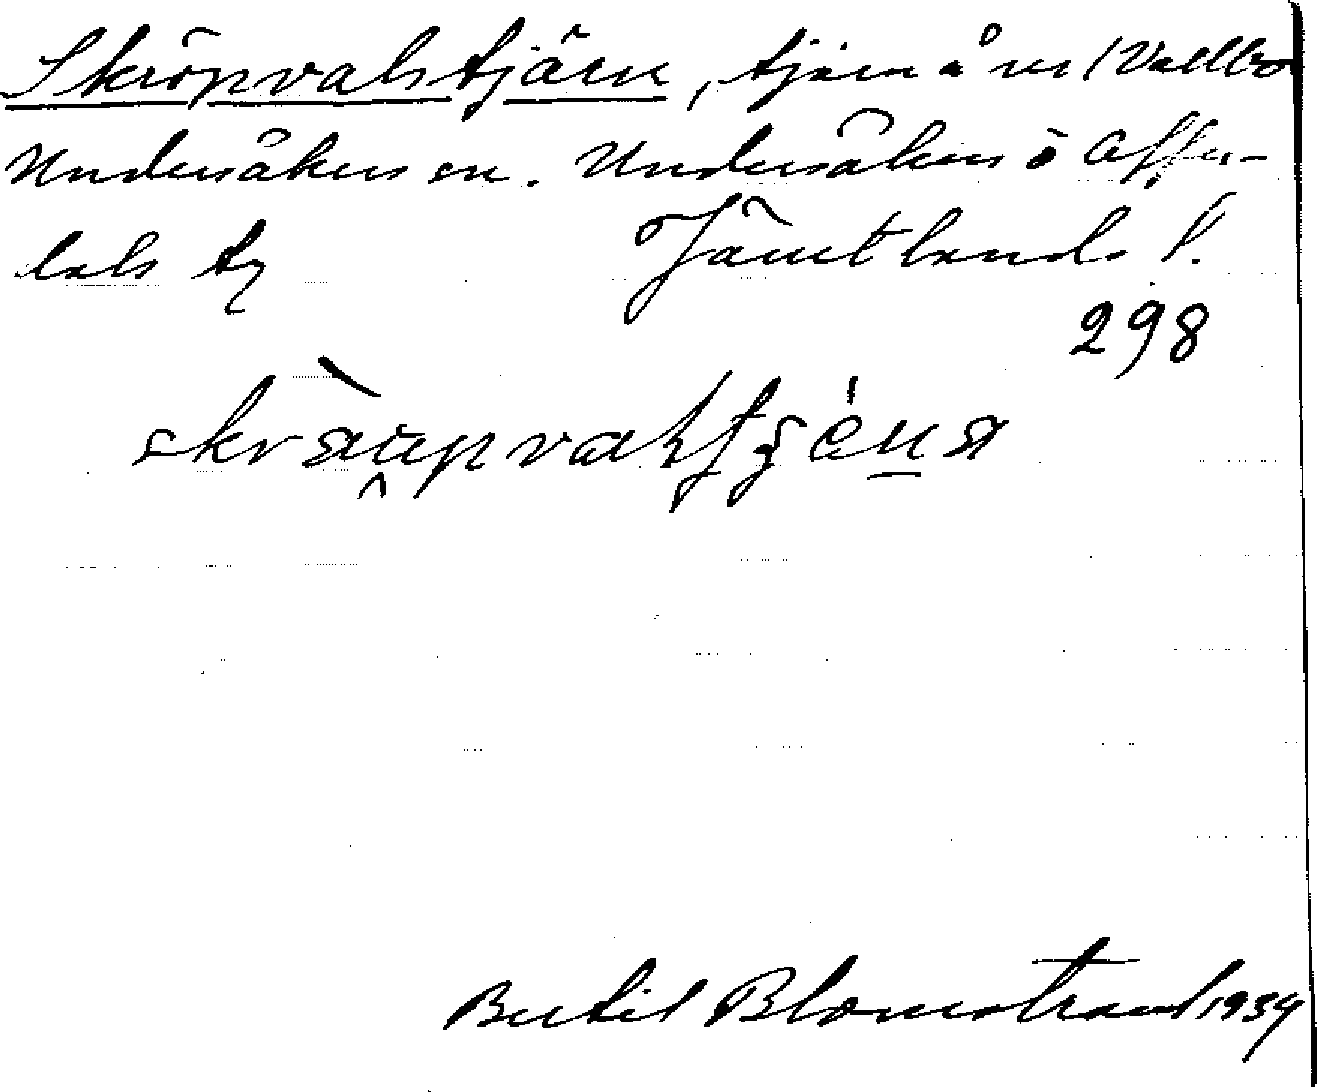 Skröpvalstjärn, tjärn å nr 1 Vallbo
Undersåkers sn. Undersåkers o Offer-
dals tg Jämtlands l.
298
Bertil Blomstrand 1934